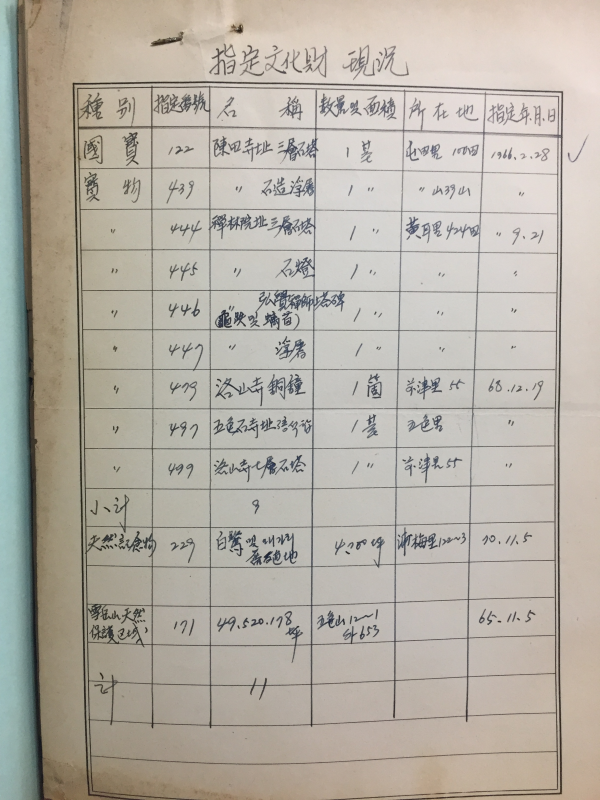 指定文化財 現況
種別 指定番號 名稱 数量및面積 所在地 指定年.月.日
國寶 122 陳田寺址 三層石塔 1 基 屯田里 100田 1966.2.28
寶物 439 〃 石造浮屠 1 〃 〃 山39山 〃
〃 444 禪林院址 三層石塔 1 〃 黃耳里 424田 〃 9.21
〃 445 〃 石燈 1 〃 〃 〃
〃 446 〃 弘覺禪師塔碑
(龜趺및 螭首) 1 〃 〃 〃
〃 447 〃 浮屠 1 〃 〃 〃
〃 479 洛山寺 銅鐘 1 箇 前津里 55 68.12.19
〃 497 五色石寺址 1 基 五色里 〃
〃 499 洛山寺 七層石塔 1 〃 前津里 55 〃
小計 9
天然記念物 229 白鷺및 왜가리 4,780坪 浦梅里 122~3 70.11.5
雪岳山 天然
保護区域 171 49,520,178
坪 五色山 12~1
外653 65.11.5
計 11